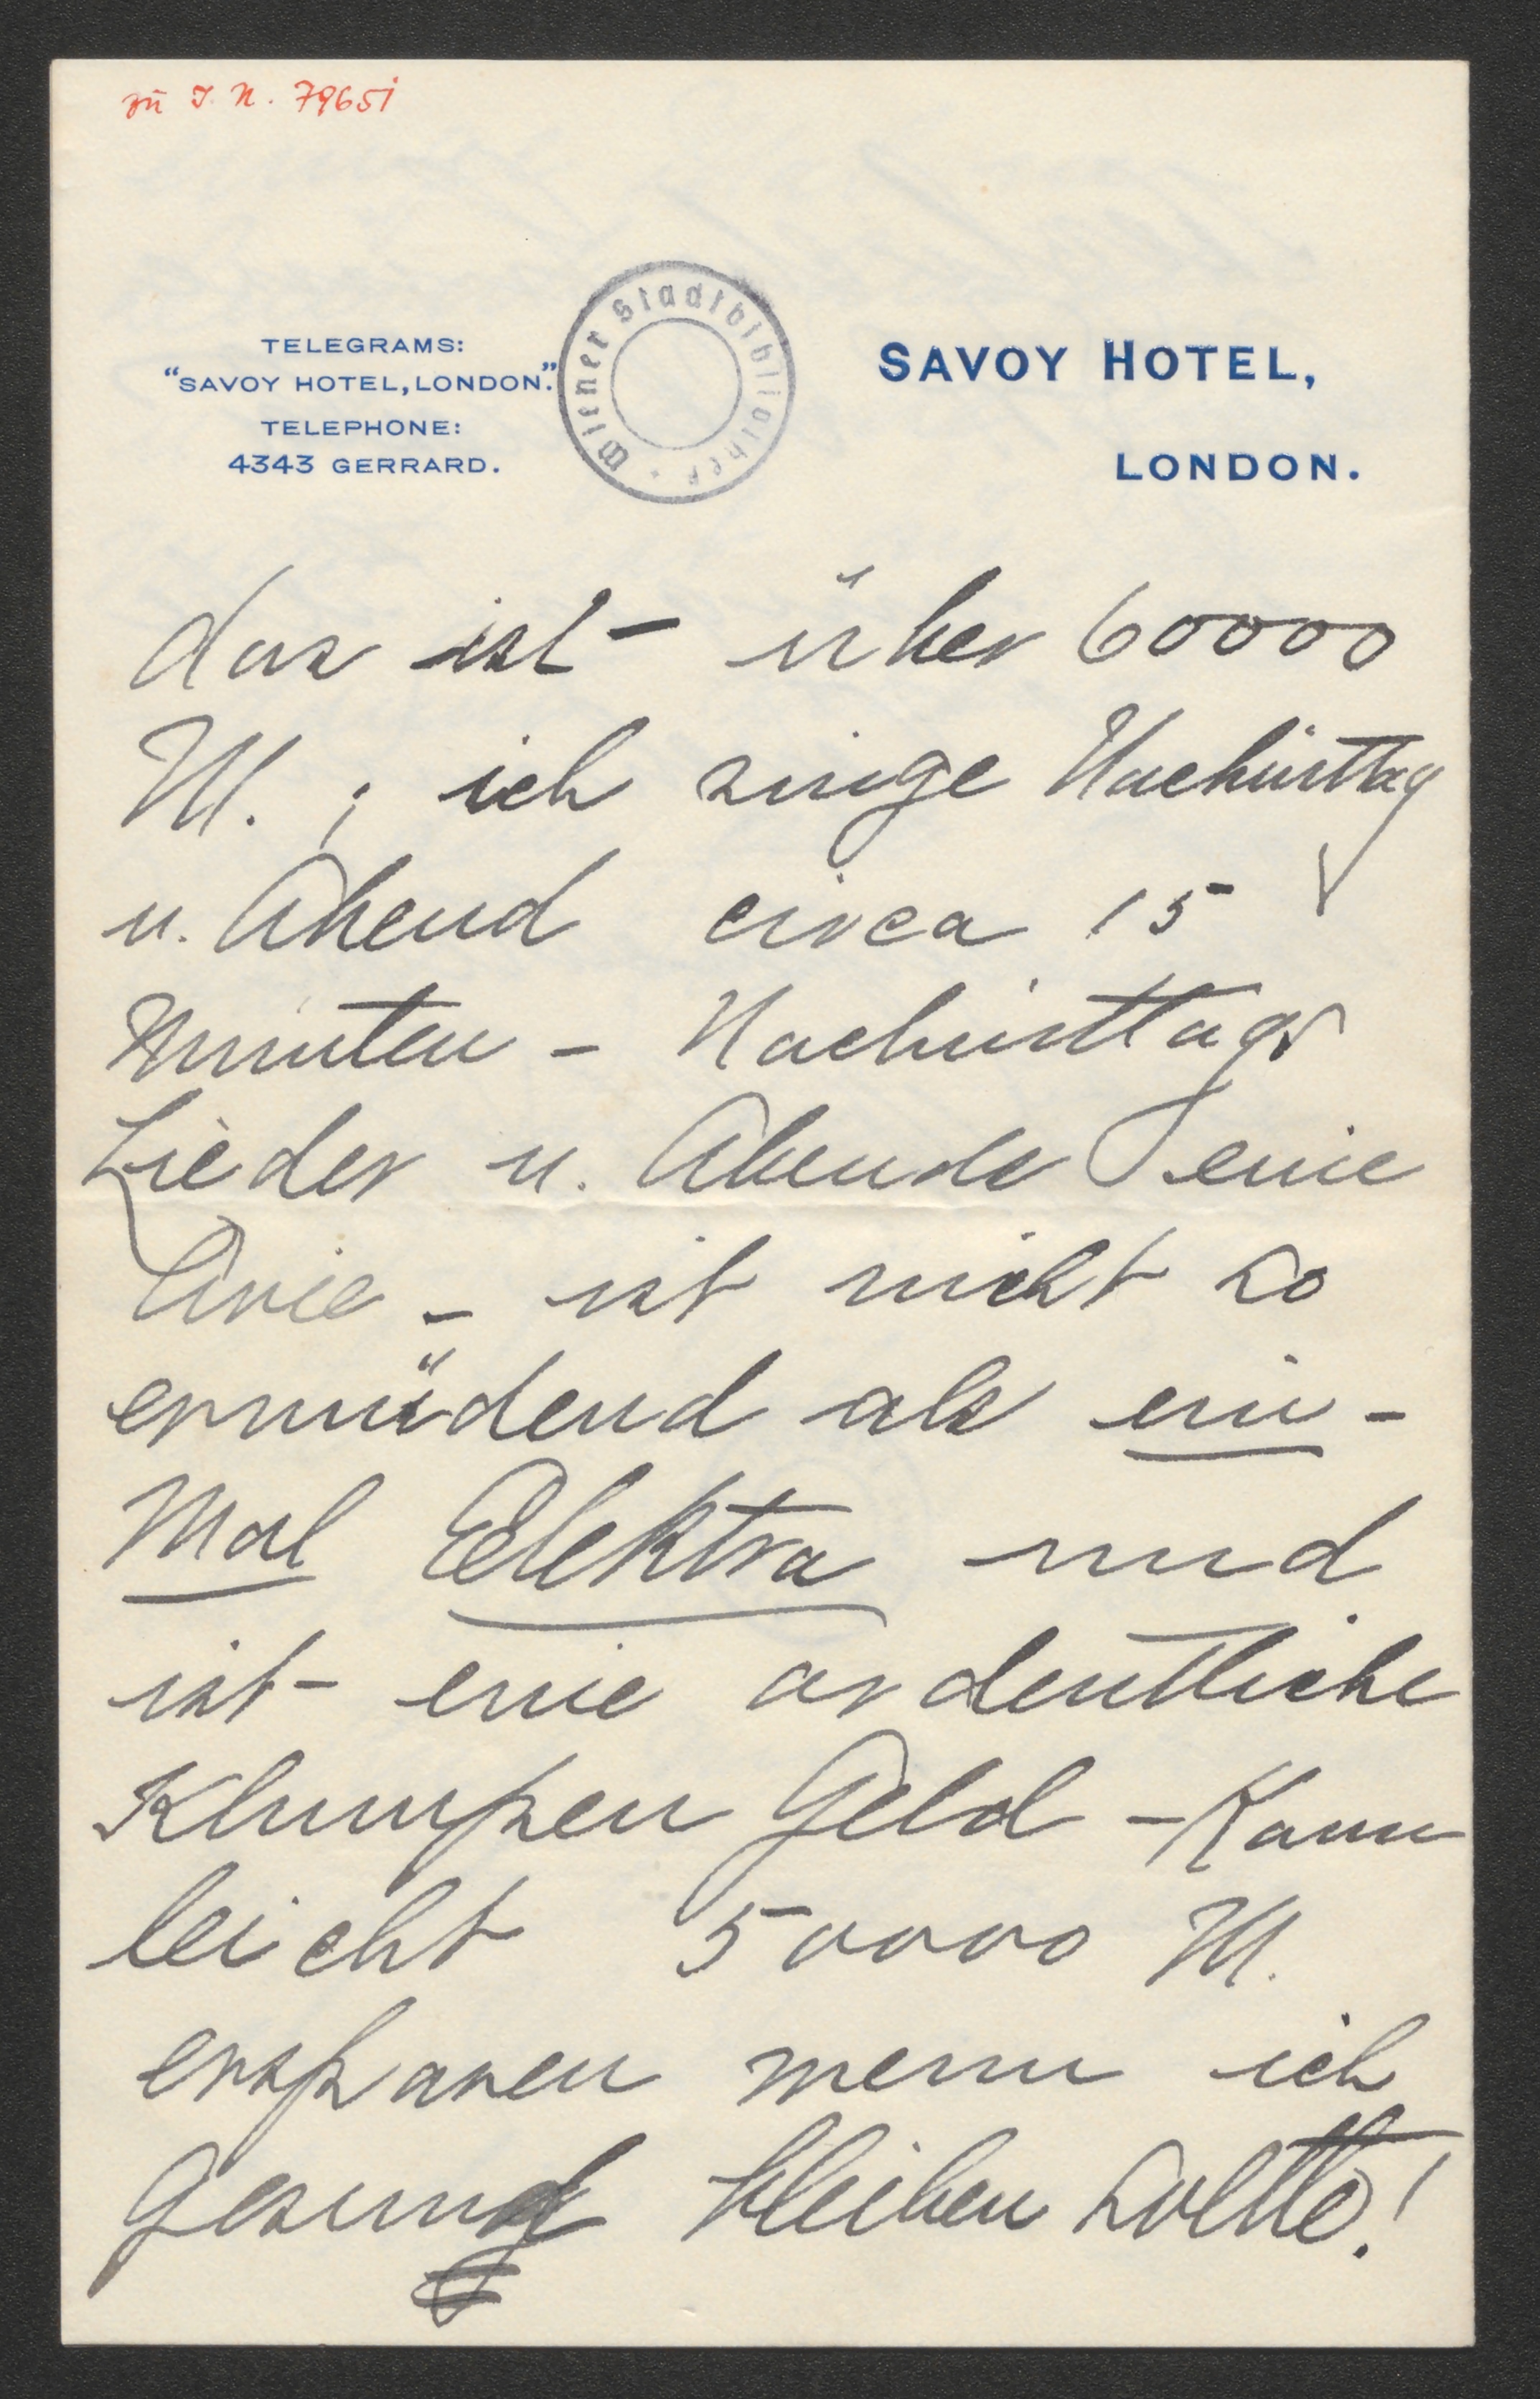 zu I. N. 79651
TELEGRAMS:
"SAVOY HOTEL, LONDON."
TELEPHONE:
4343 GERRARD.
Wiener Stadtbibliothek
SAVOY HOTEL,
LONDON.
das ist – über 60000
M. ; ich singe Nachmittag
u. Abend circa 15
Minuten – Nachmittags
Lieder u. Abends eine
Arie – ist nicht so
ermüdend als ein-
Mal Elektra und
ist – eine ordentliche
Klumpen Geld – Kann
leicht 50000 M.
ersparen wenn ich
Gesund bleiben sollte!